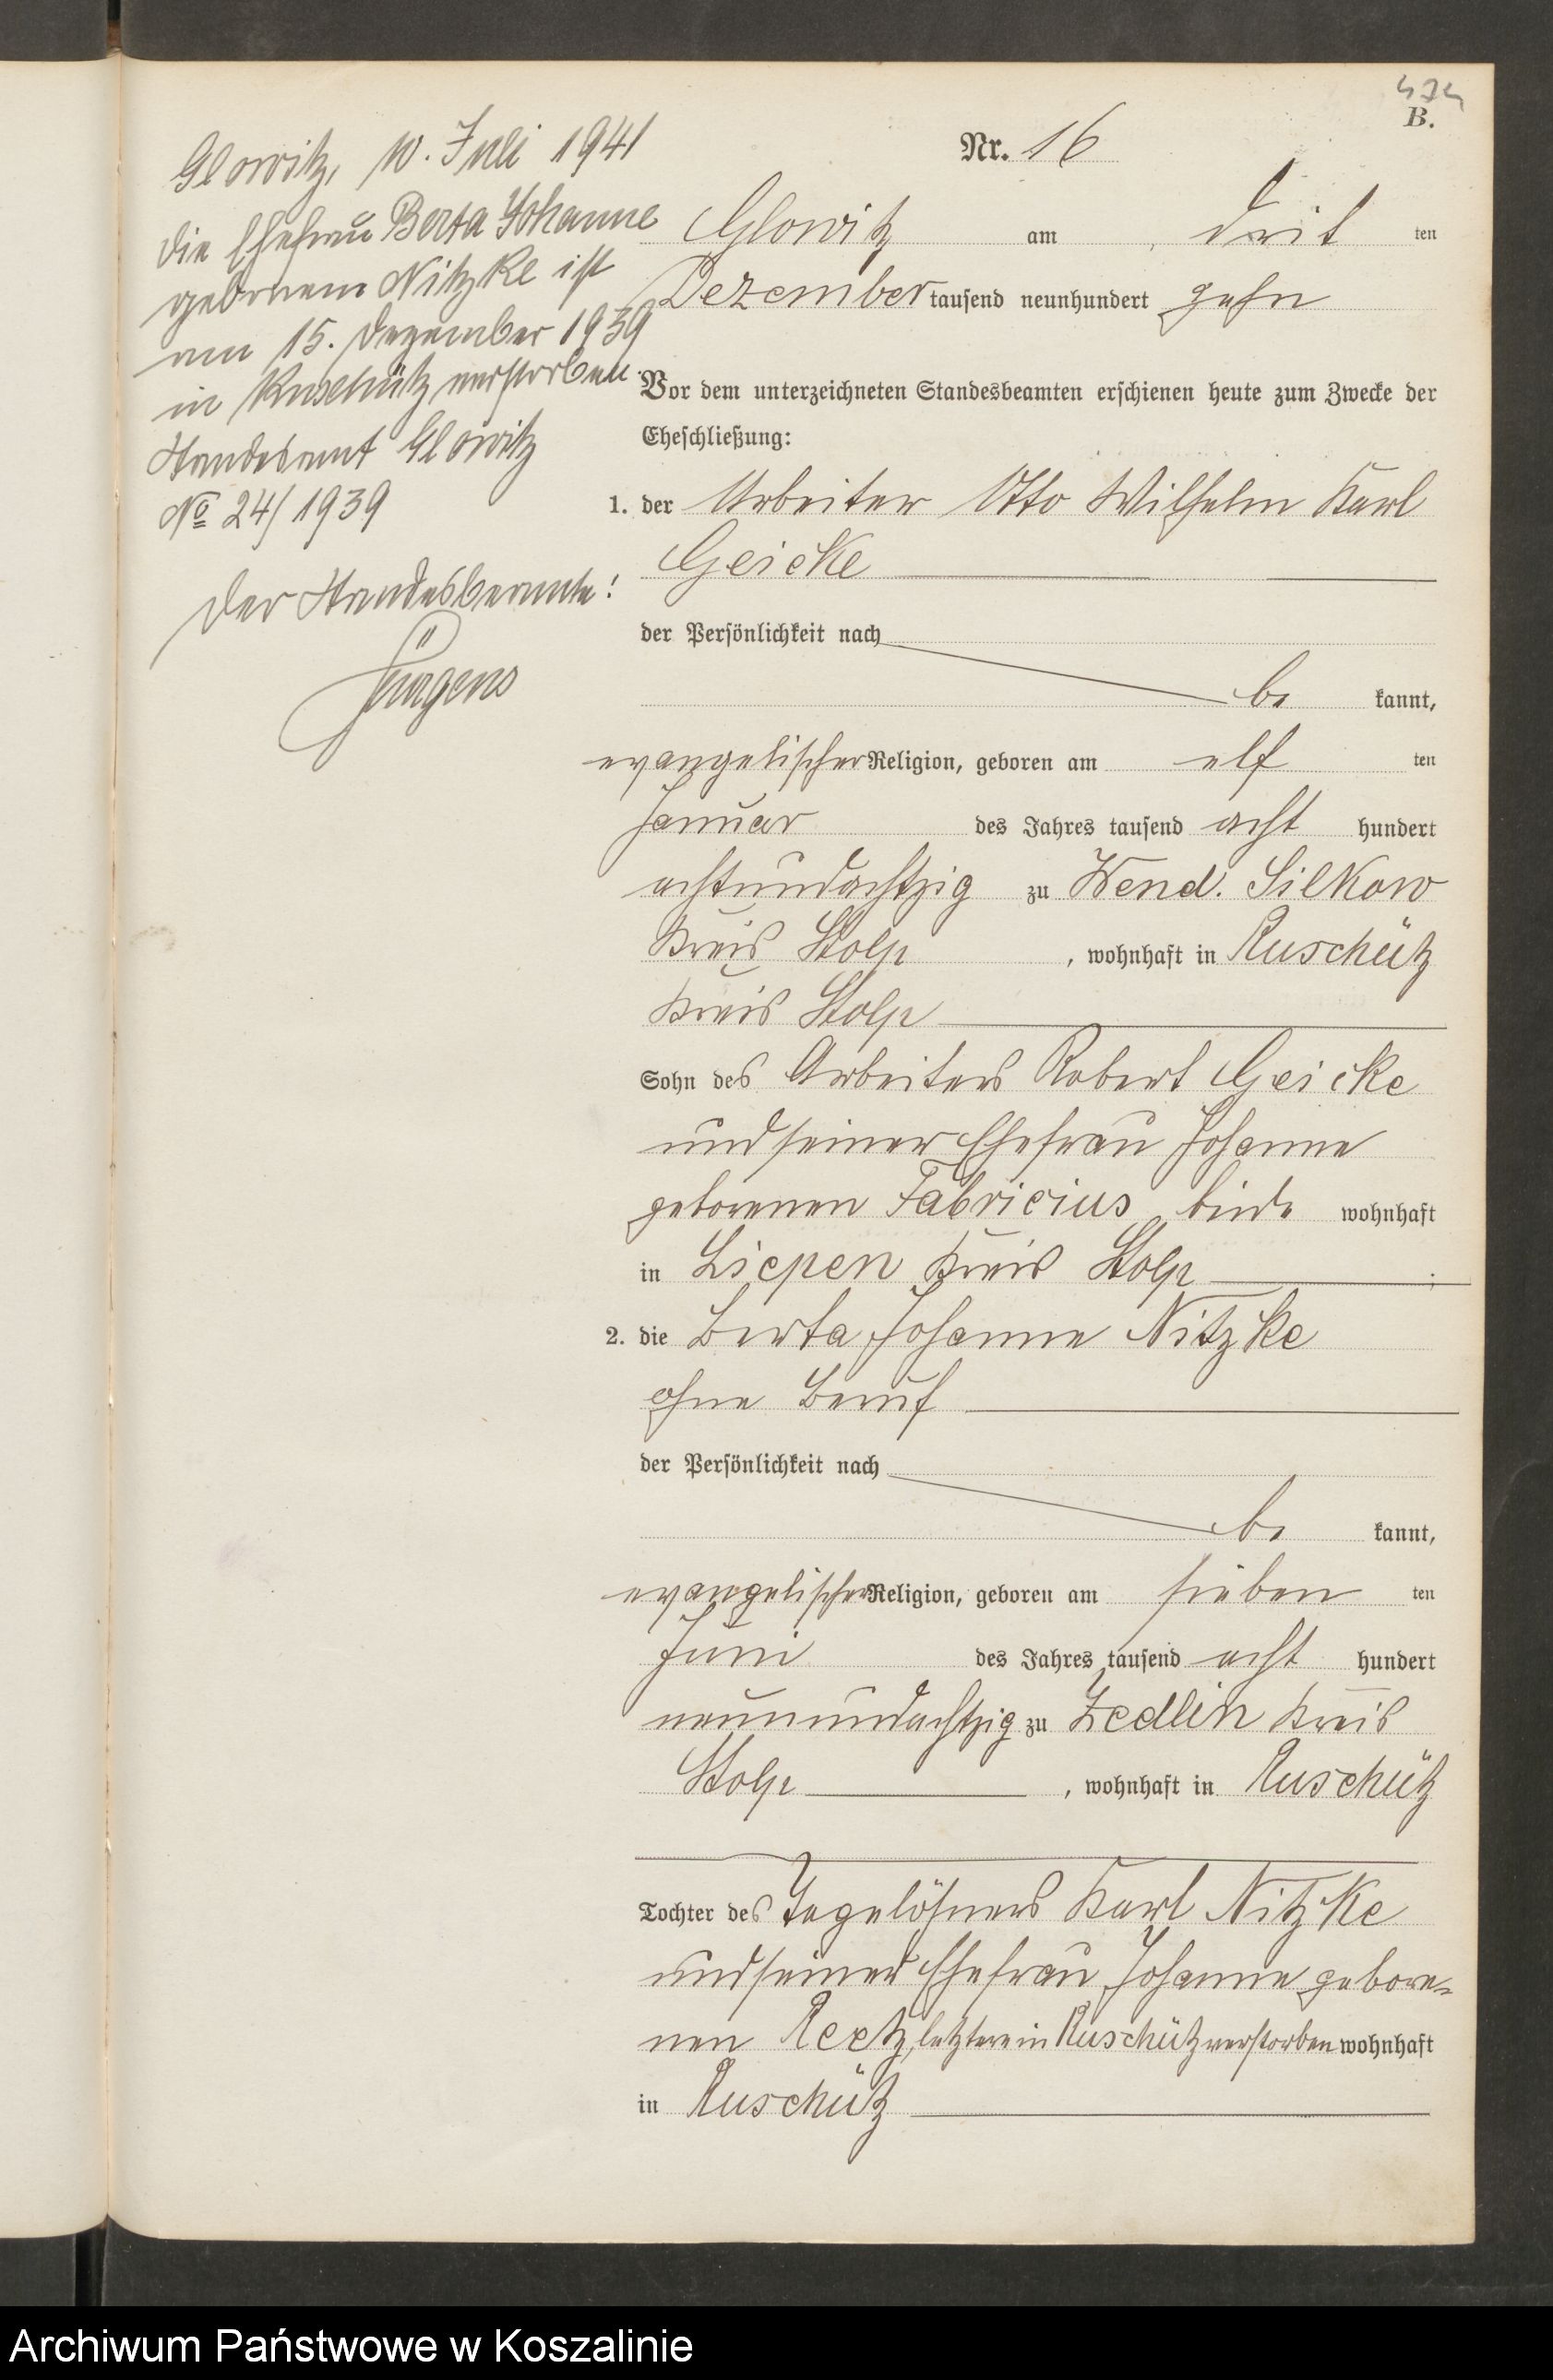 B.
Nr. 16
Glowitz, 10. Juli 1941
Die Ehefrau Berta Johanne
geborene Nitzke ist
am 15. Dezember 1939
in Ruschütz verstorben.
Standesamt Glowitz
No 24/1939
Der Standesbeamte:
Jürgens
Glowitz am dritten
Dezember tausend neunhundert zehn
Vor dem unterzeichneten Standesbeamten erschienen heute zum Zwecke der
Eheschließung:
1. der Arbeiter Otto Wilhelm Karl
Geicke
der Persönlichkeit nach
be kannt,
evangelischer Religion, geboren am elf ten
Januar des Jahres tausend acht hundert
achtundachtzig zu Wend. Silkow
Kreis Stolp, wohnhaft in Ruschütz
Kreis Stolp
Sohn des Arbeiters Robert Geicke
und seiner Ehefrau Johanne
geborenen Fabricius, beide wohnhaft
in Liepen Kreis Stolp;
2. die Berta Johanne Nitzke
ohne Beruf
der Persönlichkeit nach
be kannt,
evangelischer Religion, geboren am sieben ten
Juni des Jahres tausend acht hundert
neunundachtzig zu Zedlin Kreis
Stolp, wohnhaft in Ruschütz
Tochter des Tagelöhners Karl Nitzke
und seiner Ehefrau Johanne gebore=
nen letztere in Ruschütz verstorben wohnhaft
in Ruschütz
Archiwum Państwowe w Koszalinie